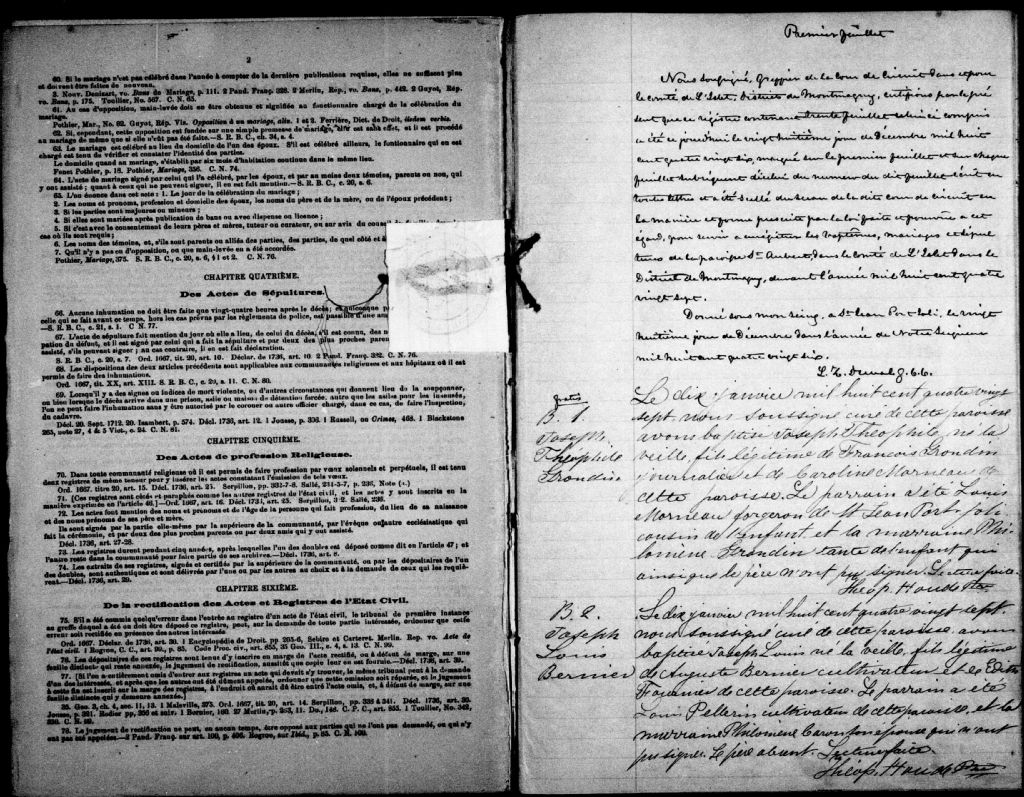 2
60. Si le mariage n'est pas célébré dans l'année à compter de la dernière publications requises, elles ne suffisent plus
et doivent être faites de nouveau.
3. Nouv. Denizart, vo. Bans de Mariage, p. 111. 2 Pand. Franç. 328. 2 Merlin, Rép., vo. Bans, p. 442. 2 Guyot, Rép.
vo. Bans, p. 175. Toullier, No. 567. C. N. 65.
61. Au cas d'opposition, main-levée doit en être obtenue et signifiée au fonctionnaire chargé de la célébration du
mariage.
Pothier, Mar., No. 82. Guyot, Rép. Vis. Opposition à un mariage, alin. 1 et 2. Ferrière, Dict. de Droit, iisdem verbis.
62. Si, cependant, cette opposition est fondée sur une simple promesse de mariage, elle est sans effet, et il est procédé
au mariage de même que si elle n'eût pas été faite.—S. R. B. C., ch. 34, s. 4.
63. Le mariage est célébré au lieu du domicile de l'un des époux. S'il est célébré ailleurs, le fontionnaire qui en est
chargé est tenu de vérifier et constater l'identité des parties.
Le domicile quand au mariage, s'établit par six mois d'habitation continue dans le même lieu.
Fenet Pothier, p. 18. Pothier, Mariage, 356. C. N. 74.
64. L'acte de mariage signé par celui qui l'a célébré, par les époux, et par au moins deux témoins, parents ou non, qui
y ont assisté; quant à ceux qui ne peuvent signer, il en est fait mention.—S. R. B. C., c. 20, s. 6.
65. L'on énonce dans cet acte: 1. Le jour de la célébration du mariage;
2. Les noms et prenoms, profession et domicile des époux, les noms du père et de la mère, ou de l'époux précédent;
3. Si les parties sont majeures ou mineures;
4. Si elles sont mariées après publication de bans ou avec dispense ou licence;
5. Si c'est avec le consentement de leurs pères et mères, tuteur ou curateur, ou sur avis du conseil de famille, dans
cas où ils sont requis;
6. Les noms des témoins, et, s'ils sont parents ou alliés des parties, des parties, de quel côté et à
7. Qu'il n'y a pas eu d'opposition, ou que main-levée en a été accordée.
Pothier, Mariage, 375. S. R. B. C., c. 20, s. 6, §1 et 2. C. N. 76.
CHAPITRE QUATRIÈME.
Des Actes de Sépultures.
66. Aucune inhumation ne doit être faite que vingt-quatre heures après le décès; et quiconque pr
celle qui se fait avant ce temps, hors les cas prévus par les règlements de police, est passible d'une am
—S. R. B. C., c. 21, s. 1. C N. 77.
67. L'acte de sépulture fait mention du jour où elle a lieu, de celui du décès, s'il est connu, des no
pation du défunt, et il est signé par celui qui a fait la sépulture et par deux des plus proches paren
assisté, s'ils peuvent signer; au cas contraire, il en est fait déclaration.
S. R. B. C., c. 20, s. 7. Ord. 1667, tit. 20, art. 10. Déclar. de 1736, art. 10. 2 Pand. Franç. 382. C. N. 76.
68. Les dispositions des deux articles précédents sont applicables aux communautés religieuses et aux hôpitaux où il est
permis de faire des inhumations.
Ord. 1667, tit. XX, art. XIII. S. R. B. C., c. 20, s. 11. C N. 80.
69. Lorsqu'il y a des signes ou indices de mort violente, ou d'autres circonstances qui donnent lieu de la soupçonner,
ou bien lorsque le décès arrive dans une prison, asile ou maison de détention forcée, autre que les asiles pour les insensés,
l'on ne peut faire l'inhumation sans y être autorisé par le coroner ou autre officier chargé, dans ce cas, de faire l'inspection,
du cadavre.
Décl. 20. Sept. 1712. 20. Isambert, p. 574. Décl. 1736, art. 12. 1 Jousse, p. 306. 1 Russell, on Crimes, 468. 1 Blackstone
265, note 27, 4 & 5 Vict., c. 24. C N. 81.
CHAPITRE CINQUIÈME.
Des Actes de profession Religieuse.
70. Dans toute communauté religieuse où il est permis de faire profession par vœux solennels et perpétuels, il est tenu
deux registres de même teneur pour y insérer les actes constatant l'émission de tels vœux.
Ord. 1667, titre 20, art. 15. Décl. 1736, art. 25. Serpillon, pp. 332-7-8. Sallé, 231-5-7, p. 236, Note (1.)
71. [Ces registres sont côtés et paraphés comme les autres registres de l'état civil, et les actes y sont inscrits en la
manière exprimée en l'article 46.]—Ord. 1667, art. 16. Décl. 1736, art. 25. Serpillon, 3 2. Sallé, 236.
72. Les actes font mention des noms et prénoms et de l'âge de la personne qui fait profession, du lieu de sa naissance
et des noms prénoms de ses père et mère.
Ils sont signés par la partie elle-même par la supérieure de la communauté, par l'évêque ou autre ecclésiastique qui
fait la cérémonie, et par deux des plus proches parents ou par deux amis qui y ont assisté.
Décl. 1736, art. 27-28.
73. Les registres durent pendant cinq années, après lesquelles l'un des doubles est déposé comme dit en l'article 47; et
l'autre reste dans la communauté pour faire partie de ses archives.—Décl. 1736, art. 7.
74. Les extraits de ses registres, signés et certifiés par la supérieure de la communauté, ou par les dépositaires de l'un
des doubles, sont authentiques et sont délivrés par l'une ou par les autres au choix et à la demande de ceux qui les requiè-
rent.—Décl. 1736, art. 29.
CHAPITRE SIXIÈME.
De la rectification des Actes et Registres de l'Etat Civil.
75. S'il a été commis quelqu'erreur dans l'entrée au registre d'un acte de l'état civil, le tribunal de première instance
au greffe duquel a été ou doit être déposé ce registre, peut, sur la demande de toute partie intéressée, ordonner que cette
erreur soit rectifiée en présence des autres intéressés.
76. Les dépositaires de ces registres sont tenus d'y inscrire en marge de l'acte rectifié, ou à défaut de marge, sur une
feuille distincte qui reste annexée, le jugement de rectification, aussitôt que copie leur en est fournie.—Décl. 1736, art. 30.
77. [Si l'on a entièrement omis d'entrer aux registres un acte qui devait s'y trouver, le même tribunal peut à la demande
d'un des intéressés, et après que les autres ont été dûment appelés, ordonner que cette omission soit réparée, et le jugement
à cette fin est inscrit sur la marge des registres, à l'endroit où aurait dû être entré l'acte omis, et, à défaut de marge, sur une
feuille distincte qui y demeure annexée.
78. Le jugement de rectification ne peut, en aucun temps, être opposé aux parties qui ne l'ont pas demandé, ou qui n'y
ont pas été appelées.
Premier feuillet
Nous soussigné, Greffier de la Cour de Circuit dans et pour
le comté de L'Islet, District de Montmagny, certifions par le pré
sent que ce registre contenant trente feuillets celui-ci compris
a été ce jourd'hui le vingt huitième jour de Décembre mil huit
cent quatre vingt six, marqué sur le premier feuillet et sur chaque
feuillet subséquent d'icelui du numéro du dit feuillet écrit en
toutes lettres et a été scellé du sceau de la dite cour de circuit en
la manière et forme prescrite par la loi faite et pourvue a cet
égard, pour servir a enrégistrer les baptêmes, mariages et sépul
tures de la paroisse St. Aubert dans le comté de L'Islet dans le
District de Montmagny, durant l'année mil huit cent quatre
vingt sept.
Donné sous mon seing, a St. Jean Port Joli, le vingt
huitième jour de Décembre dans l'année de Notre Seigneur
mil huit cent quatre vingt six.
L. Z. Duval G. C. C.
B. 1.
Joseph
Théophile
Grondin
Le dix janvier mil huit cent quatre vingt
sept, nous soussigné curé de cette paroisse
avons baptisé Joseph Théophile, né la
veille, fils légitime de François Grondin
journalier et de Caroline Morneau de
cette paroisse. Le parrain a été Louis
Morneau forgeron de St Jean Port-Joli
cousin de l'enfant et la marraine Phi-
lomène Grondin tante de l'enfant qui
ainsi que le père n'ont pu signer. Lecture faite.
Théop. Houde Ptre
B. 2.
Joseph
Louis
Bernier
Le dix janvier mil huit cent quatre vingt sept,
nous soussigné curé de cette paroisse avons
baptisé Joseph Louis né la veille, fils légitime
de Auguste Bernier cultivateur et de
Fournier de cette paroisse. Le parrain a été
Louis Pellerin cultivateur de cette paroisse, et la
marraine Philomène Caron son épouse qui n'ont
pu signer. Le père absent. Lecture faite.
Théop. Houde Ptre